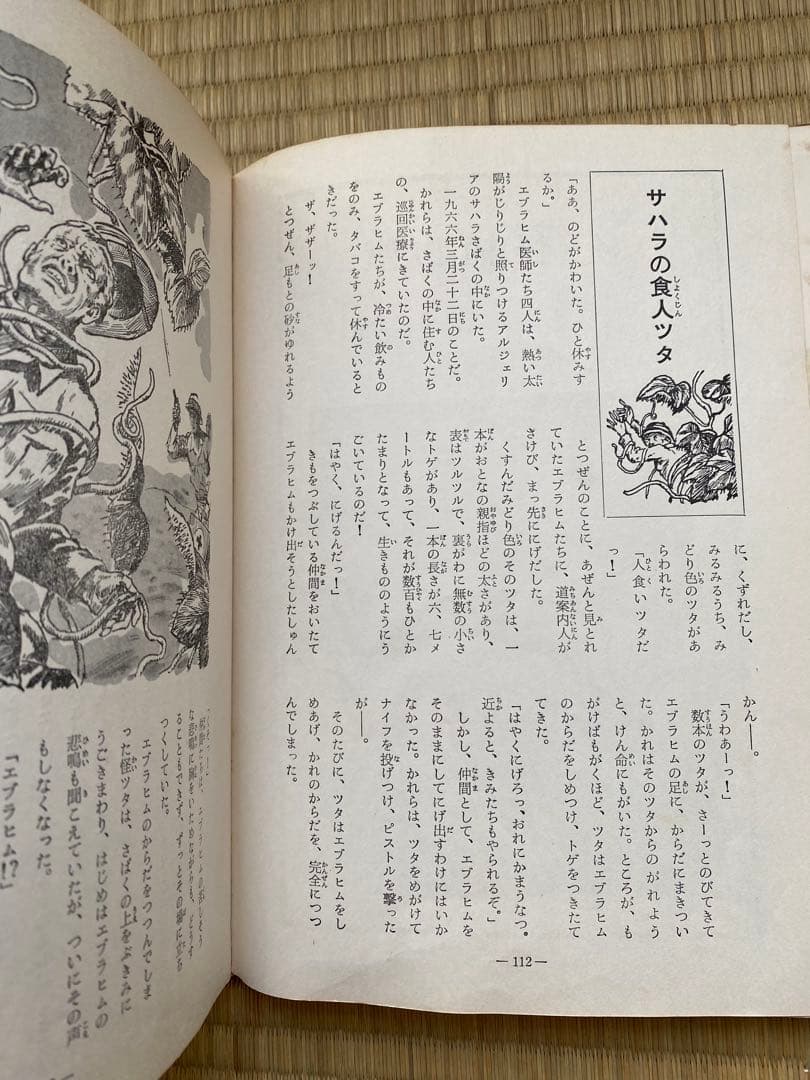 サハラの食人ツタ
「ああ、のどがかわいた。ひと休みす
るか。」
エブラヒム医師たち四人は、熱い太
陽がじりじりと照りつけるアルジェリ
アのサハラさばくの中にいた。
一九六六年三月二十二日のことだ。
かれらは、さばくの中に住む人たち
の、巡回医療にきていたのだ。
エブラヒムたちが、冷たい飲みもの
をのみ、タバコをすって休んでいると
きだった。
ザ、ザザーッ！
とつぜん、足もとの砂がゆれるよう
に、くずれだし、
みるみるうち、み
どり色のツタがあ
らわれた。
「人食いツタだ
っ！」
とつぜんのことに、あぜんと見とれ
ていたエブラヒムたちに、道案内人が
さけび、まっ先ににげだした。
くすんだみどり色のそのツタは、一
本がおとなの親指ほどの太さがあり、
表はツルツルで、裏がわに無数の小さ
なトゲがあり、一本の長さが六、七メ
ートルもあって、それが数百もひとか
たまりとなって、生きもののようにう
ごいているのだ！
「はやく、にげるんだっ！」
きもをつぶしている仲間をおいたて
エブラヒムもかけ出そうとしたしゅん
かん――。
「うわあーっ！」
数本のツタが、さーっとのびてきて
エブラヒムの足に、からだにまきつい
た。かれはそのツタからのがれよう
と、けん命にもがいた。ところが、も
がけばもがくほど、ツタはエブラヒム
のからだをしめつけ、トゲをつきたて
てきた。
「はやくにげろっ、おれにかまうなっ。
近よると、きみたちもやられるぞ。」
しかし、仲間として、エブラヒムを
そのままにしてにげ出すわけにはいか
なかった。かれらは、ツタをめがけて
ナイフを投げつけ、ピストルを撃った
が――。
そのたびに、ツタはエブラヒムをし
めあげ、かれのからだを、完全につつ
んでしまった。
―112―
な悲鳴に胸をいためながらも、どうす
ることもできず、ずっとその場に立ち
つくしていた。
エブラヒムのからだをつつんでしま
った怪ツタは、さばくの上をぶきみに
うごきまわり、はじめはエブラヒムの
悲鳴も聞こえていたが、ついにその声
もしなくなった。
「エブラヒム!?